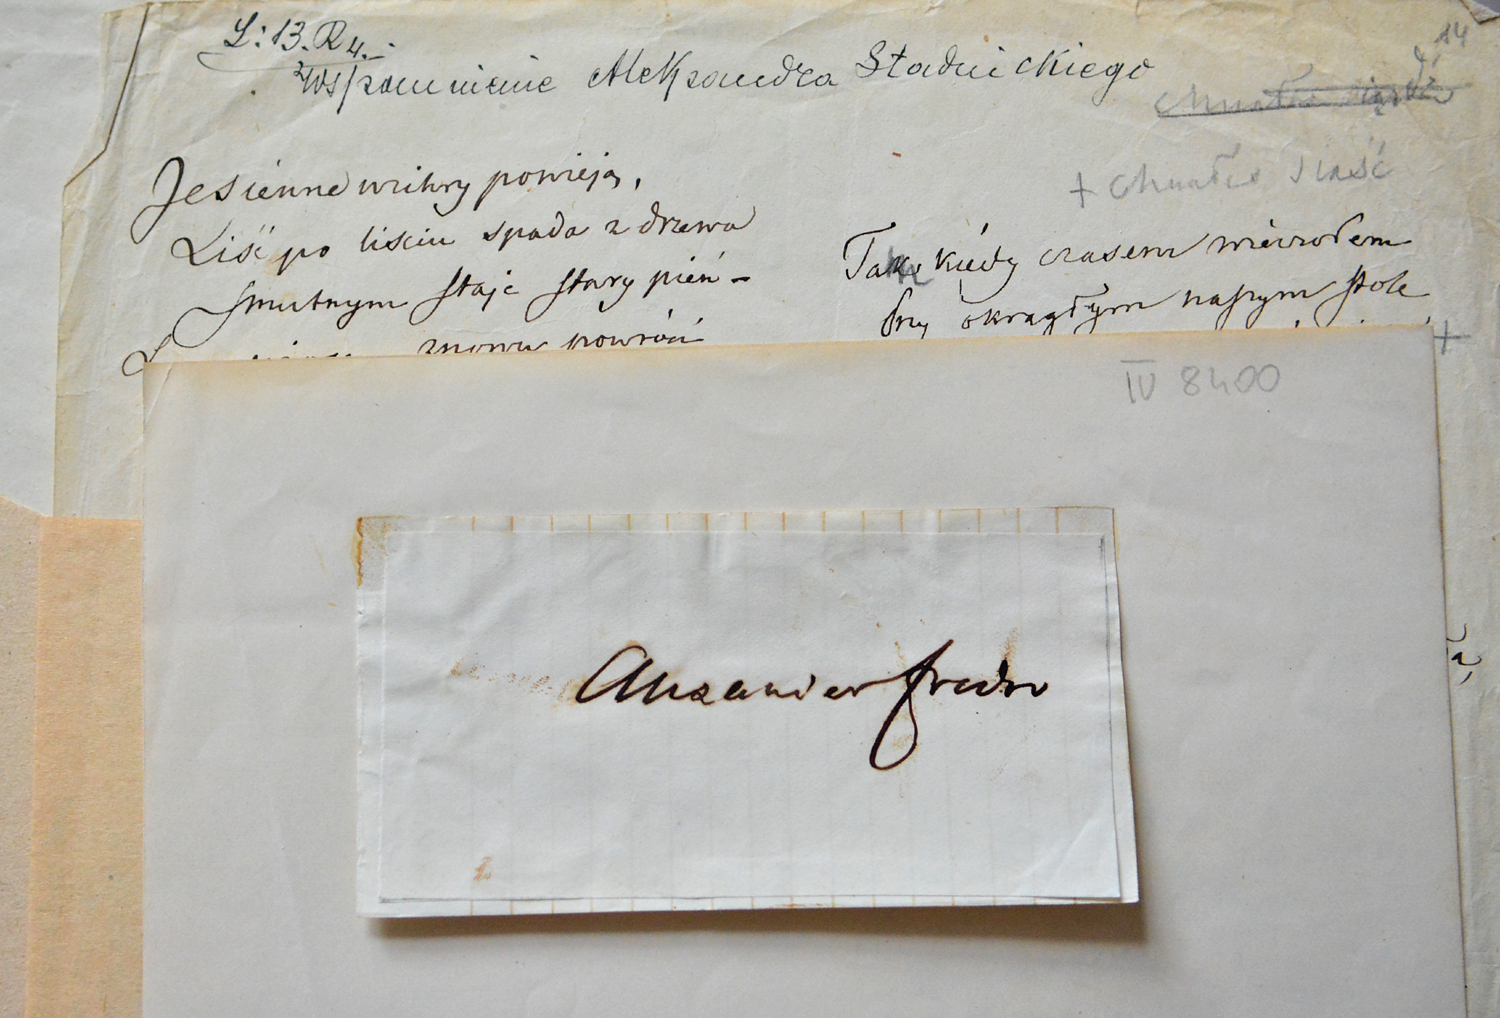 L: 13. R 4.
Wspomnienie Aleksandra Stadnickiego
14
Jesienne wichry powieją,
Liść po liściu spada z drzewa
Smutnym staje stary pień –
znowu powróci
+ Chwałce
Tak kiedy czasem wieczorem
Przy okrągłym naszym stole
+
IV 8400
Alexander Fredro